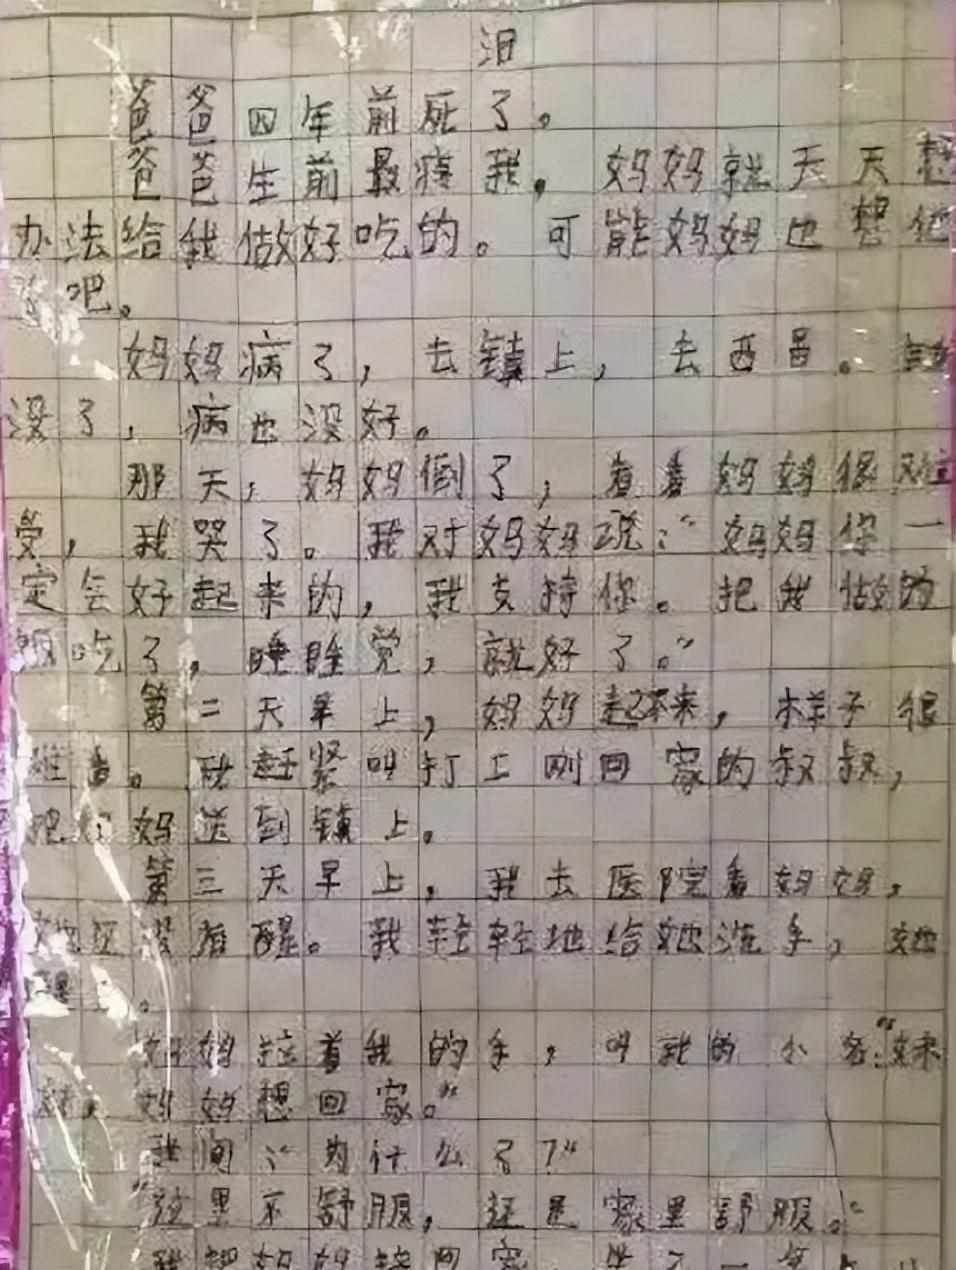 泪
爸爸四年前死了。
爸爸生前最疼我，妈妈就天天想
办法给我做好吃的。可能妈妈也想他
了吧。
妈妈病了，去镇上，去西昌。钱
没了，病也没好。
那天，妈妈倒了，看看妈妈很难
受，我哭了。我对妈妈说：“妈妈你一
定会好起来的，我支持你。把我做的
饭吃了，睡睡觉，就好了。”
第二天早上，妈妈起不来，样子很
难看。我赶紧叫打工刚回家的叔叔，
把妈妈送到镇上。
第三天早上，我去医院看妈妈，
她还没有醒。我轻轻地给她洗手，她
醒了。
妈妈拉着我的手，叫我的小名：“妹
妹，妈妈想回家。”
我问：“为什么了？”
“这里不舒服，还是家里舒服。”
我把妈妈接回家，坐了一